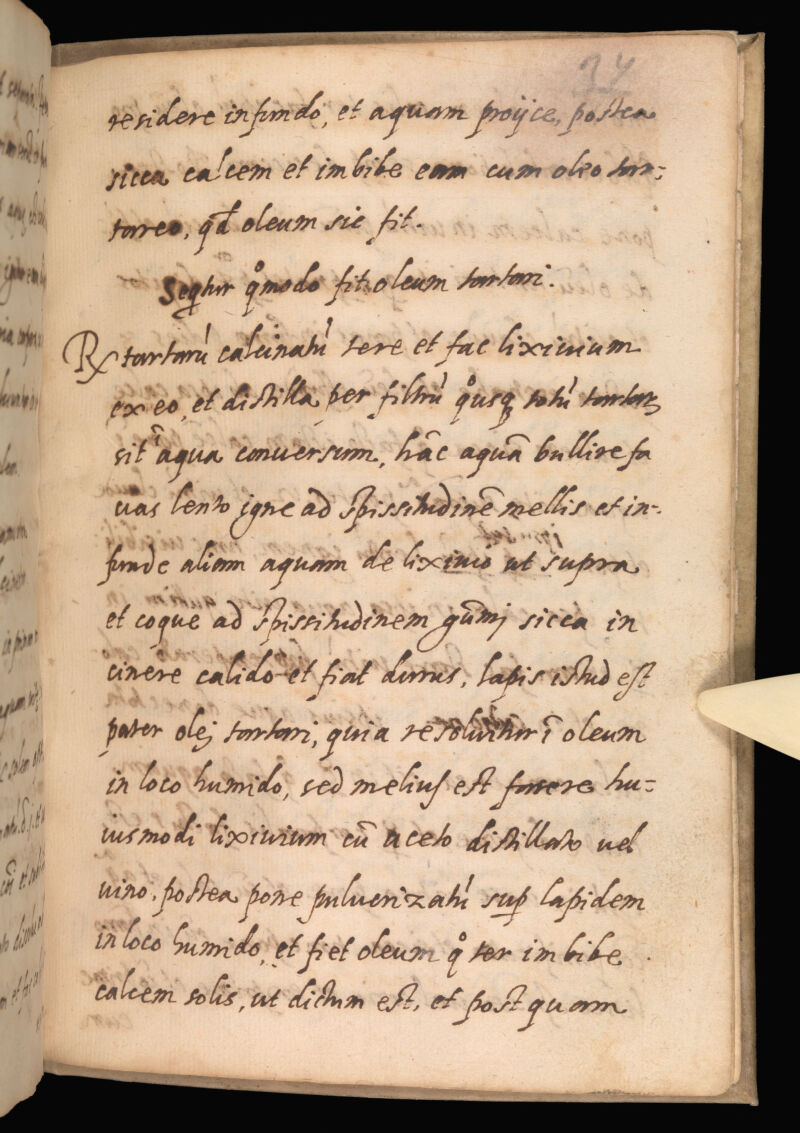 24
residere in fundo, et aquam proijce, postea
sicca calcem et imbibe eam cum oleo tar-
tareo, qd oleum sic fit.
Seqtur qomodo fit oleum tartari.
Rx tartarũ calcinatũ tere et fac lixiuium
ex eo, et distilla per filtrũ qousq totũ tartarz
sit ĩ aqua conuersum, hãc aquã bullire fa
uas lento igne ad spissitudinẽ mellis et in-
funde aliam aquam de lixiuio ut supra
et coque ad spissitudinem gũmj sicca in
cinere calido et fiat durus, lapis istud est
pater olej tartari, quia resoluitur ĩ oleum
in loco humido, sed melius est facere hu-
iusmodi lixiuium cũ aceto distillato uel
uino, postea pone puluerizatũ sup lapidem
in loco humido, et fiet oleum qo ter imbibe
calcem solis, ut dictum est, et postquam